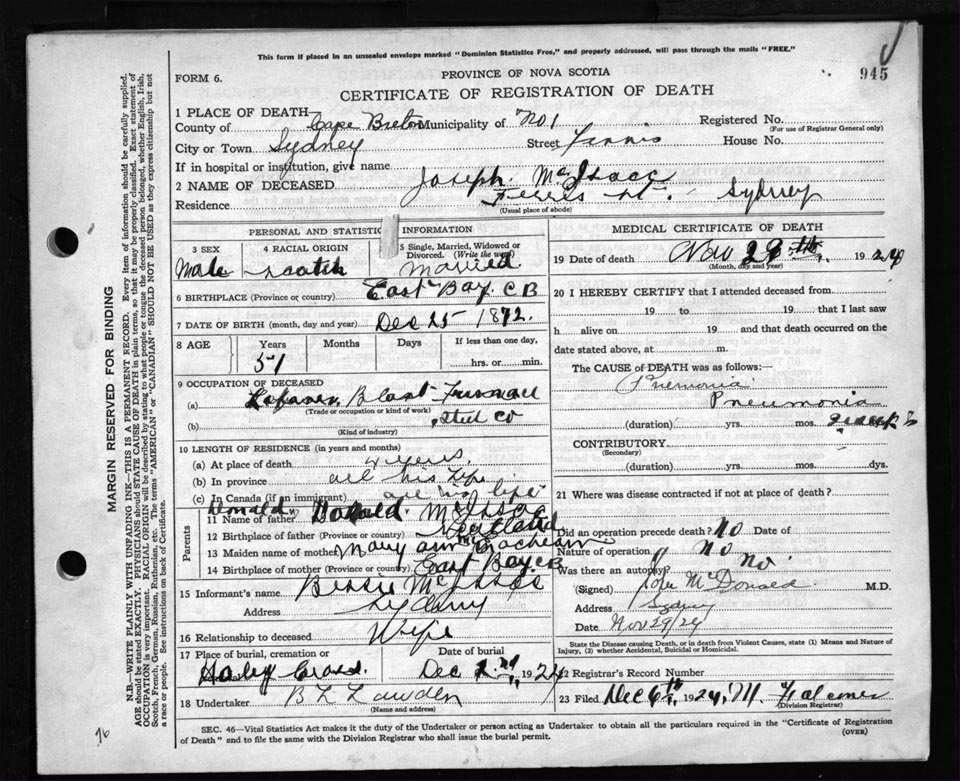 This form if placed in an unsealed envelope marked "Dominion Statistics Free," and properly addressed, will pass through the mails "FREE."
FORM 6.
PROVINCE OF NOVA SCOTIA
945
CERTIFICATE OF REGISTRATION OF DEATH
1 PLACE OF DEATH
County of Cape Breton Municipality of No 1 Registered No.
(For use of Registrar General only)
City or Town Sydney Street House No.
If in hospital or institution, give name
2 NAME OF DECEASED Joseph McIsaac
Residence Ferris St. Sydney
(Usual place of abode)
PERSONAL AND STATISTIC INFORMATION
3 SEX 4 RACIAL ORIGIN 5 Single, Married, Widowed or Divorced. (Write the word)
Male Scotch Married
6 BIRTHPLACE (Province or country) East Bay C B
7 DATE OF BIRTH (month, day and year) Dec 25 1872.
8 AGE Years Months Days If less than one day,
51 hrs. or min.
9 OCCUPATION OF DECEASED
(a) Blast Furnace
(Trade or occupation or kind of work)
(b) Steel Co
(Kind of industry)
10 LENGTH OF RESIDENCE (in years and months)
(a) At place of death years
(b) In province all his life
(c) In Canada (if an immigrant) all his life
Parents
11 Name of father Donald Donald McIsaac
12 Birthplace of father (Province or country) Scotland
13 Maiden name of mother Mary Ann McEachern
14 Birthplace of mother (Province or country) East Bay CB
15 Informant's name Bessie McIsaac
Address Sydney
16 Relationship to deceased Wife
17 Place of burial, cremation or Date of burial
Holey Cross. Dec 2nd 1924
18 Undertaker B L Lawden
(Name and address)
MEDICAL CERTIFICATE OF DEATH
19 Date of death Nov 1924
(Month, day and year)
20 I HEREBY CERTIFY that I attended deceased from
19 to 19 , that I last saw
h alive on 19 and that death occurred on the
date stated above, at m.
The CAUSE of DEATH was as follows:
Pnemonia
Pneumonia
(duration) yrs. mos.
CONTRIBUTORY
(Secondary)
(duration) yrs. mos. dys.
21 Where was disease contracted if not at place of death?
Did an operation precede death? No Date of
Nature of operation No
Was there an autopsy? No
(Signed) John McDonald M.D.
Address Sydney
Date Nov 29/24
State the Disease causing Death, or in death from Violent Causes, state (1) Means and Nature of Injury, (2) whether Accidental, Suicidal or Homicidal.
22 Registrar's Record Number
23 Filed Dec 6th 1924, M. Falconer
(Division Registrar)
SEC. 46—Vital Statistics Act makes it the duty of the Undertaker or person acting as Undertaker to obtain all the particulars required in the "Certificate of Registration of Death" and to file the same with the Division Registrar who shall issue the burial permit.
(OVER)
MARGIN RESERVED FOR BINDING
N.B.—WRITE PLAINLY WITH UNFADING INK—THIS IS A PERMANENT RECORD. Every item of information should be carefully supplied.
AGE should be stated EXACTLY. PHYSICIANS should STATE CAUSE OF DEATH in plain terms, so that it may be properly classified. Exact statement of
OCCUPATION is very important. RACIAL ORIGIN will be described by stating to what people or tongue the deceased person belonged, whether English, Irish,
Scotch, French, German, Russian, Ruthenian, etc. The terms "AMERICAN" or "CANADIAN" SHOULD NOT BE USED as they express citizenship but not
a race or people. See instructions on back of Certificate.